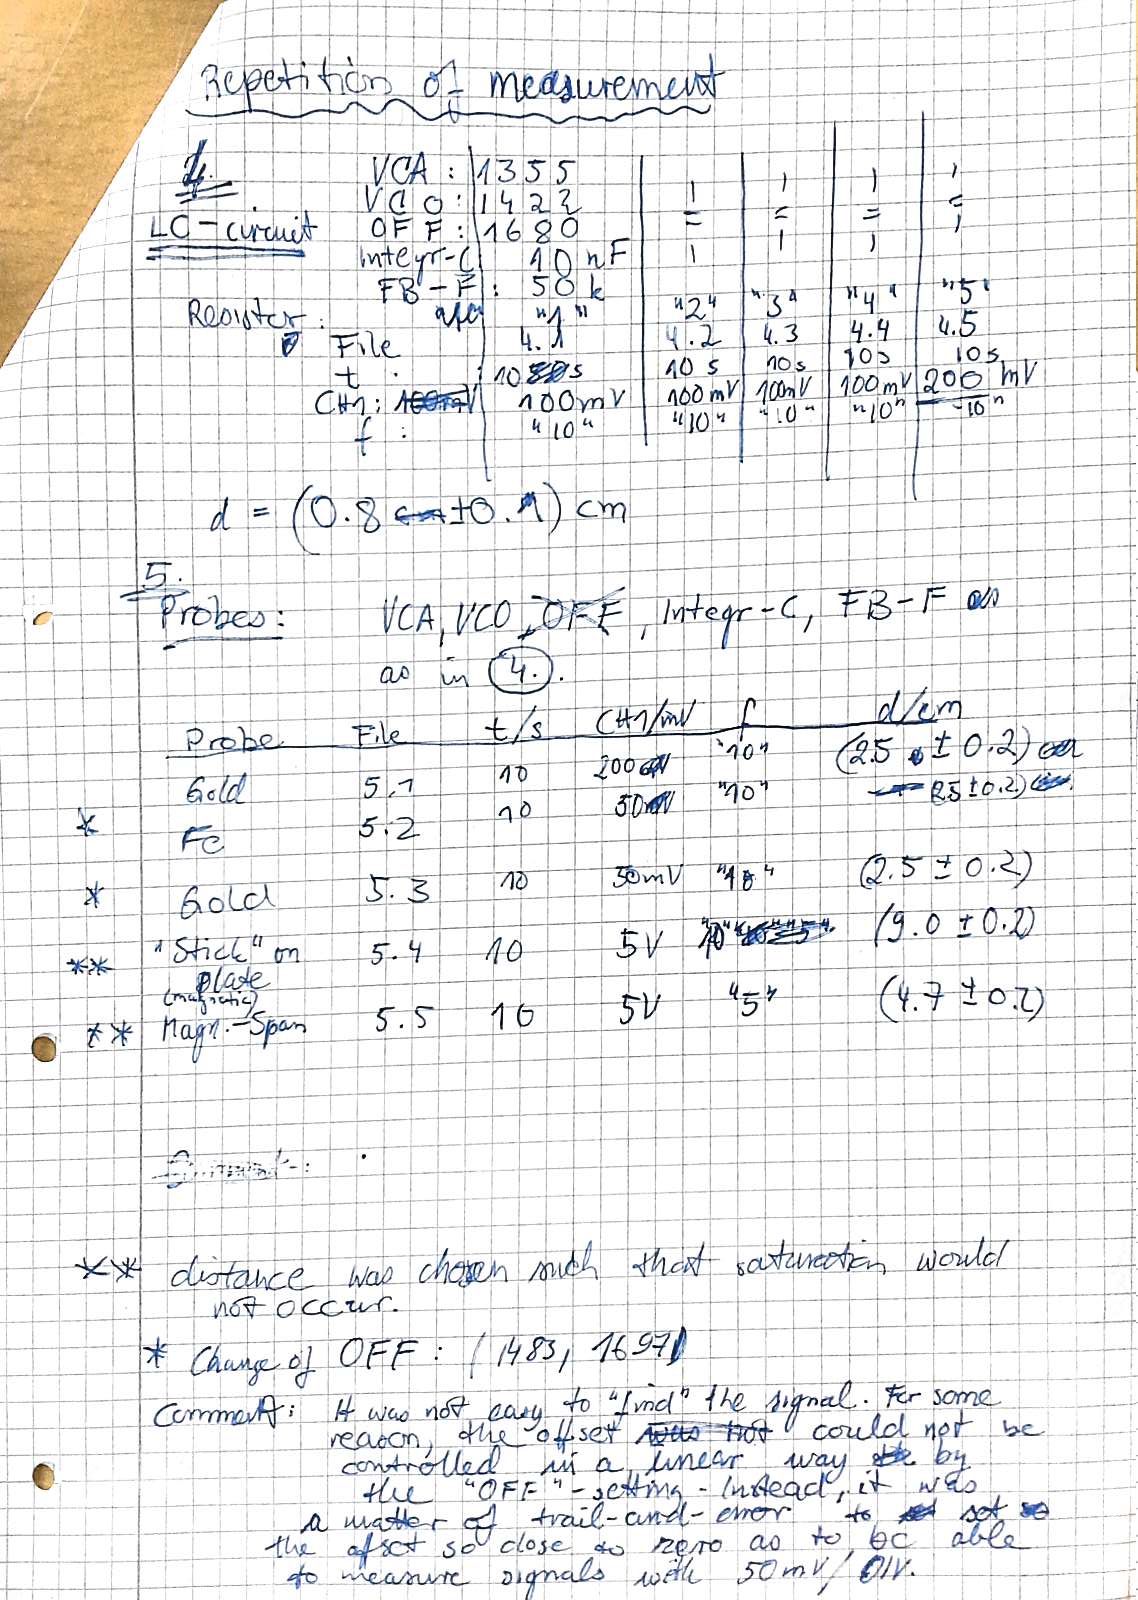 Repetition of measurement
4.
LC-circuit
VCA: 1355
VCO: 1422
OFF: 1680
Integr-C 10 nF
FB-F: 50 k
Resistor: "1" "2" "3" "4" "5"
File 4.1 4.2 4.3 4.4 4.5
t : 10 s 10 s 10s 10s 10s
CH1: 100mV 100mV 100mV 100mV 200 mV
f : "10" "10" "10" "10" "10"
d = (0.8 ±0.1) cm
5.
Probes: VCA, VCO, OFF, Integr-C, FB-F as
as in 4.
Probe File t/s CH1/mV f d/cm
Gold 5.1 10 200 "10" (2.5 ± 0.2)
* Fe 5.2 10 50 "10" (2.5 ± 0.2)
* Gold 5.3 10 50mV "10" (2.5 ± 0.2)
** "Stick" on 5.4 10 5V "10" (9.0 ± 0.2)
plate
(magnetic)
** Magn.-Span 5.5 10 5V "5" (4.7 ± 0.2)
** distance was chosen such that saturation would
not occur.
* Change of OFF: (1483, 1697)
Comment: It was not easy to "find" the signal. For some
reason, the offset was not could not be
controlled in a linear way by
the "OFF"-setting. Instead, it was
a matter of trail-and-error to set
the ofset so close to zero as to be able
to measure signals with 50mV/DIV.